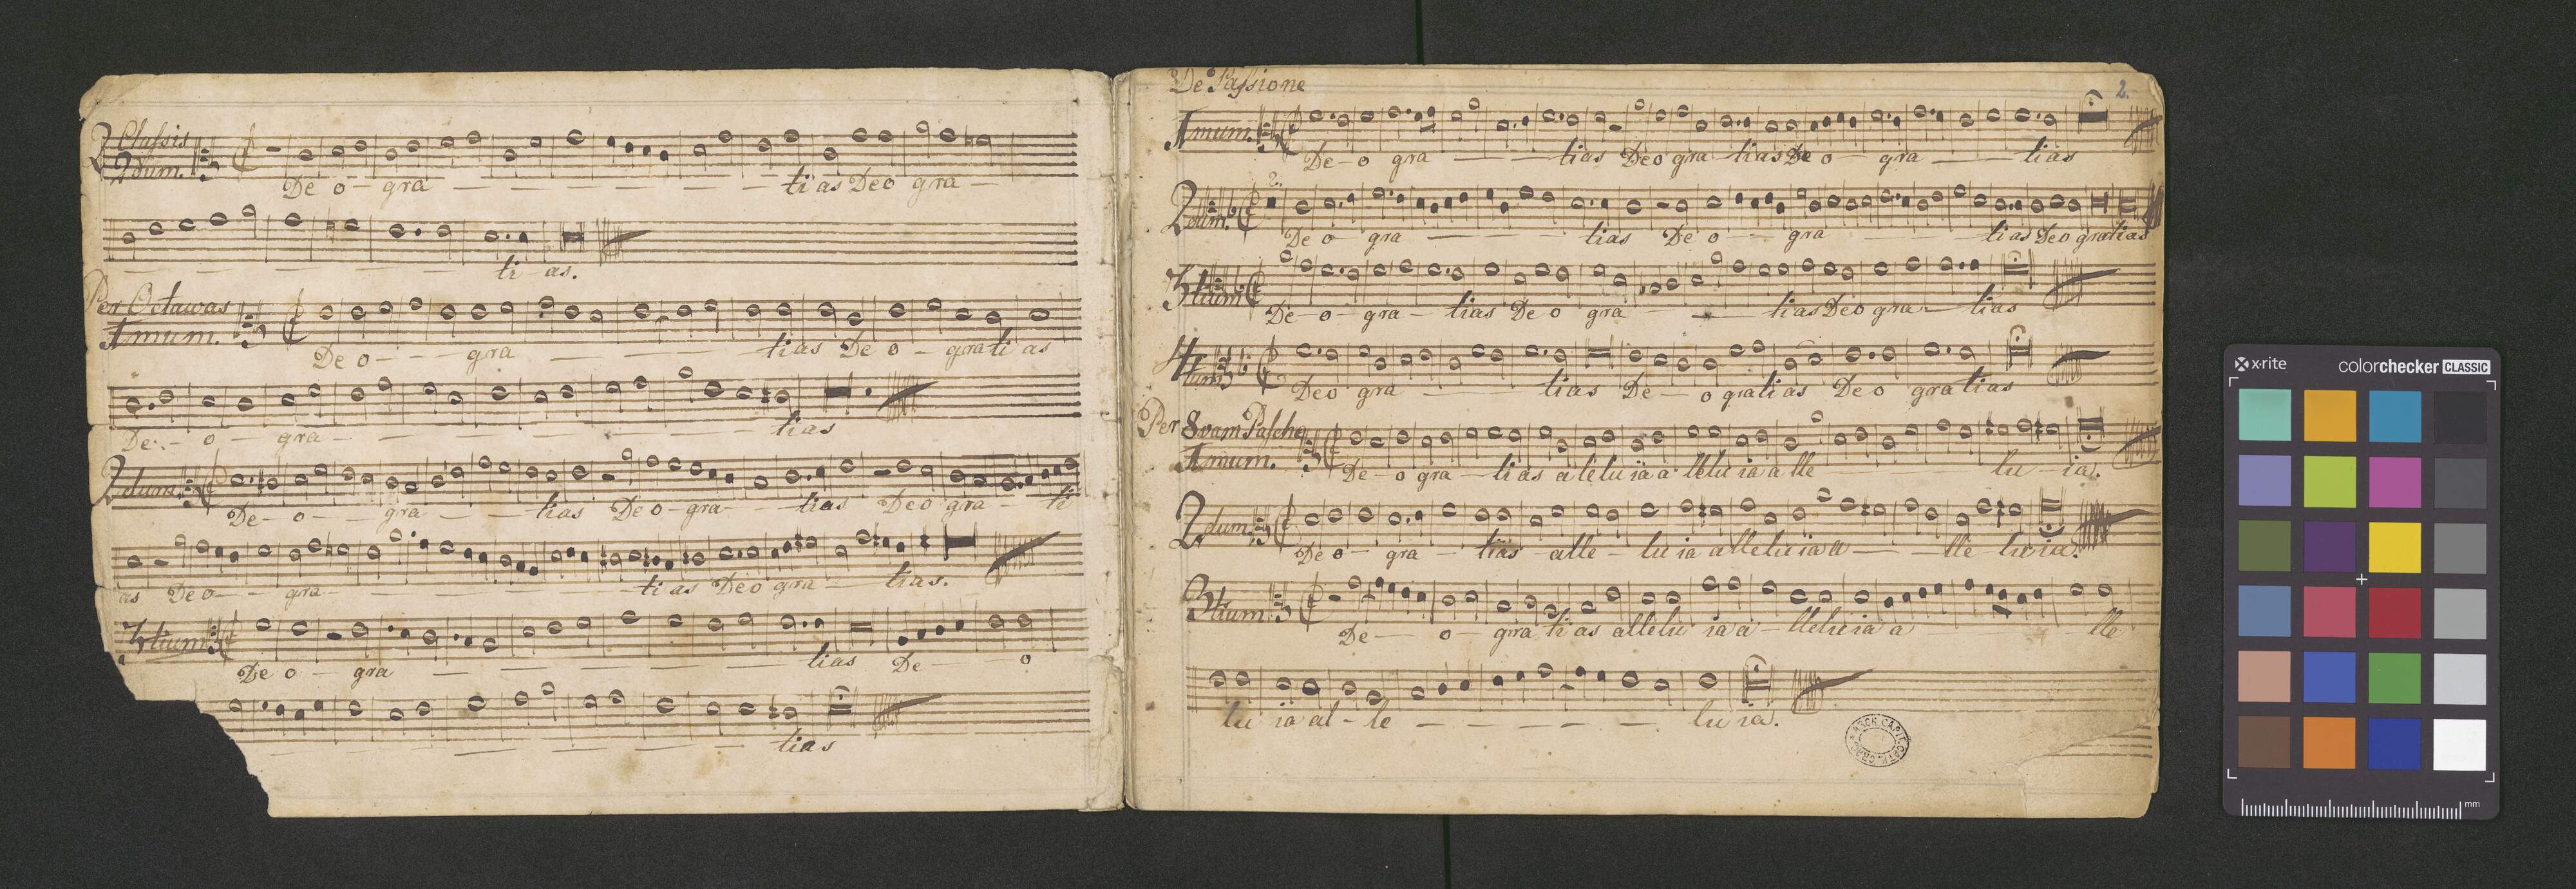 2 Classis
2dum.
De o - gra - tias Deo gra -
ti as.
Per Octawas
1mum.
De o - gra - tias De o - grati as
De - o - gra - tias
2dum
De - o - gra - tias Deo - gra - tias Deo gra - ti
as Deo - gra - ti as Deo gra - tias.
3tium
De o - gra - tias De - o
tias
De Passione
2.
1mum.
De - o gra - tias Deo gra - tias De o - gra - tias
2dum.
2.
De o gra - tias De o - gra - tias Deo gratias
3tium
De - o - gra - tias De o gra - tias Deo gra - tias
4tum
Deo gra - tias De - o grati as Deo gratias
Per 8vam Pascha
1mum.
De - o gra - ti as a le lu ia a lle lu ia a lle - lu - ia.
2dum
De o - gra - tias - alle - lu ia allelu ia a - lle lu ia.
3tium
De - o - gra ti as allelu ia a - llelu ia a lle
lu ia al - le - lu ia.
ARCH. CAPIT. CATH. CRAC.
x-rite
colorchecker CLASSIC
mm